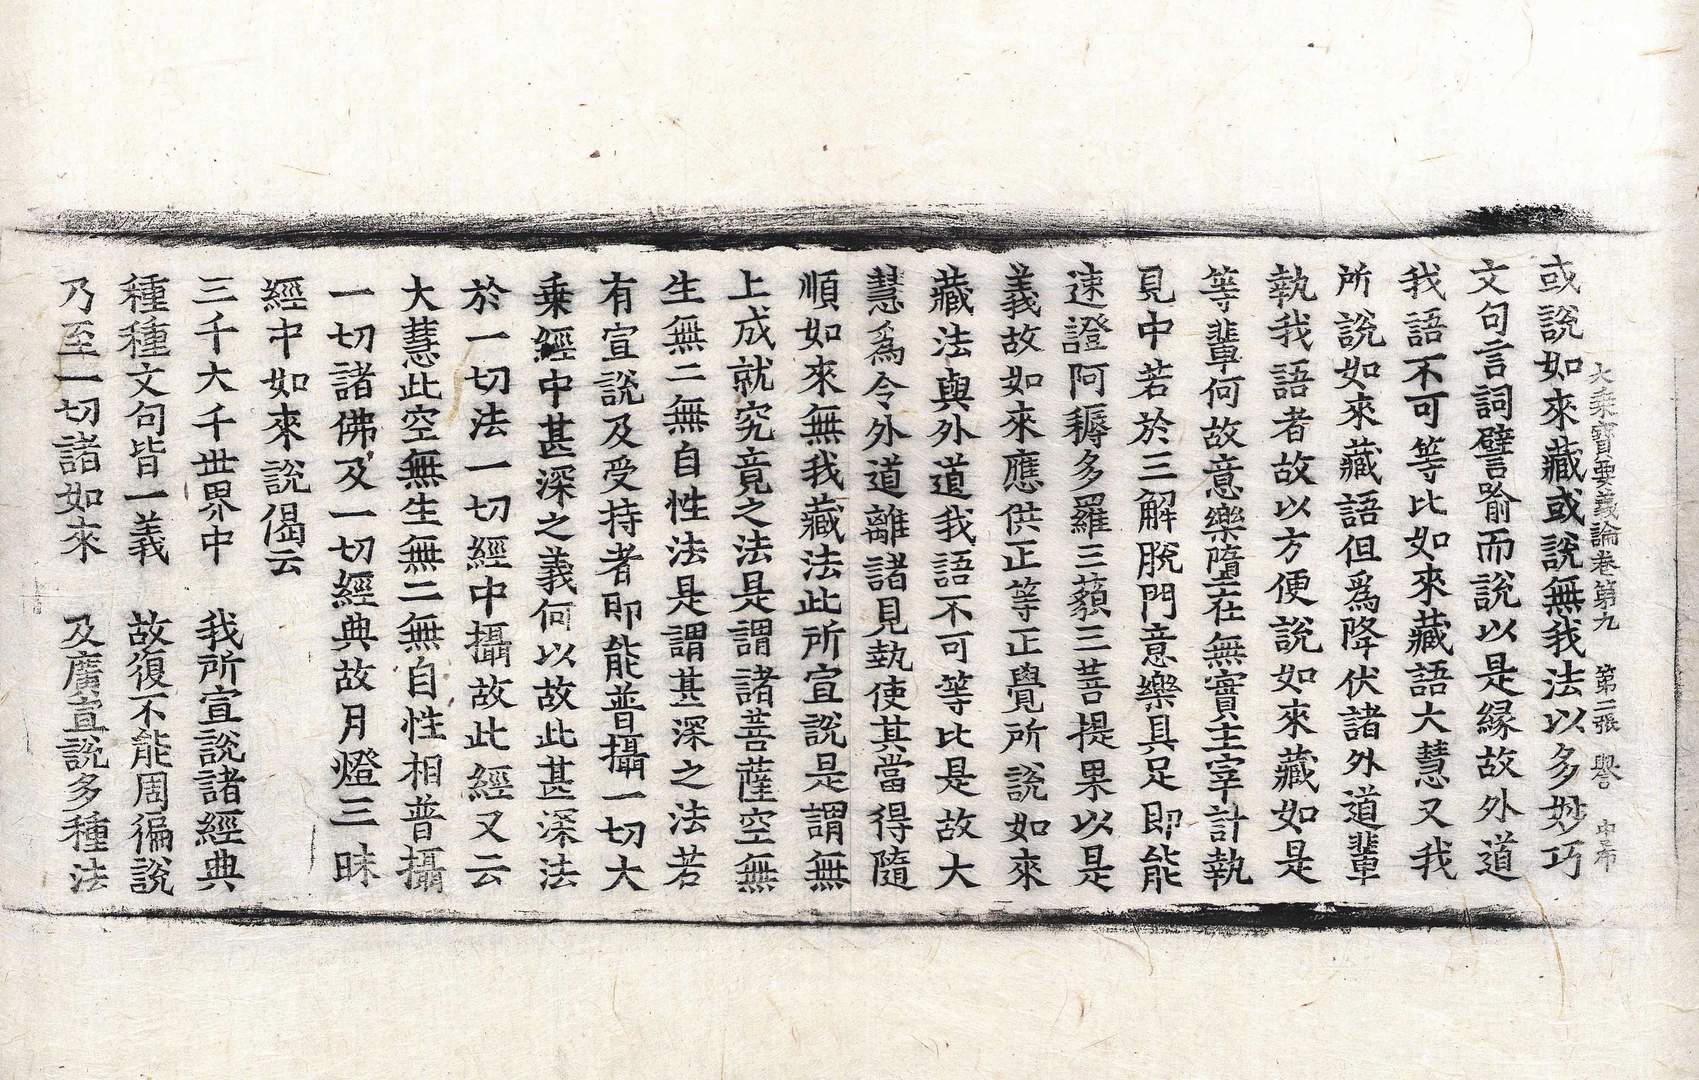 大乘寶要義論卷第九 第二張 譽
或說如來藏或說無我法以多妙巧
文句言詞譬喻而說以是縁故外道
我語不可等比如來藏語大慧又我
所說如來藏語但爲降伏諸外道輩
執我語者故以方便說如來藏如是
等輩何故意樂墮在無實主宰計執
見中若於三解脫門意樂具足即能
速證阿耨多羅三藐三菩提果以是
義故如來應供正等正覺所說如來
藏法與外道我語不可等比是故大
慧爲令外道離諸見執使其當得隨
順如來無我藏法此所宣說是謂無
上成就究竟之法是謂諸菩薩空無
生無二無自性法是謂甚深之法若
有宣說及受持者即能普攝一切大
乗經中甚深之義何以故此甚深法
於一切法一切經中攝故此經又云
大慧此空無生無二無自性相普攝
一切諸佛及一切經典故月燈三昧
經中如來說偈云
三千大千世界中 我所宣說諸經典
種種文句皆一義 故復不能周徧說
乃至一切諸如來 及廣宣說多種法